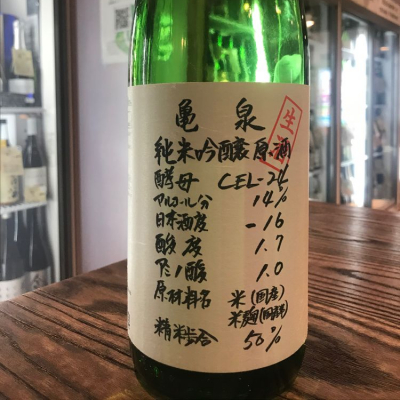 亀泉
生酒
純米吟醸原酒
酵母 CEL-24
アルコール分 14%
日本酒度 -16
酸度 1.7
アミノ酸 1.0
原材料名 米(国産)
米麹(国産米)
精米歩合 50%